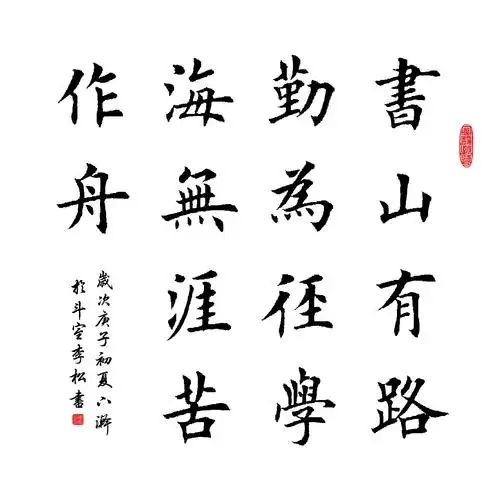 書山有路
勤為徑學
海無涯苦
作舟
歲次庚子初夏六澣
於斗室李松書